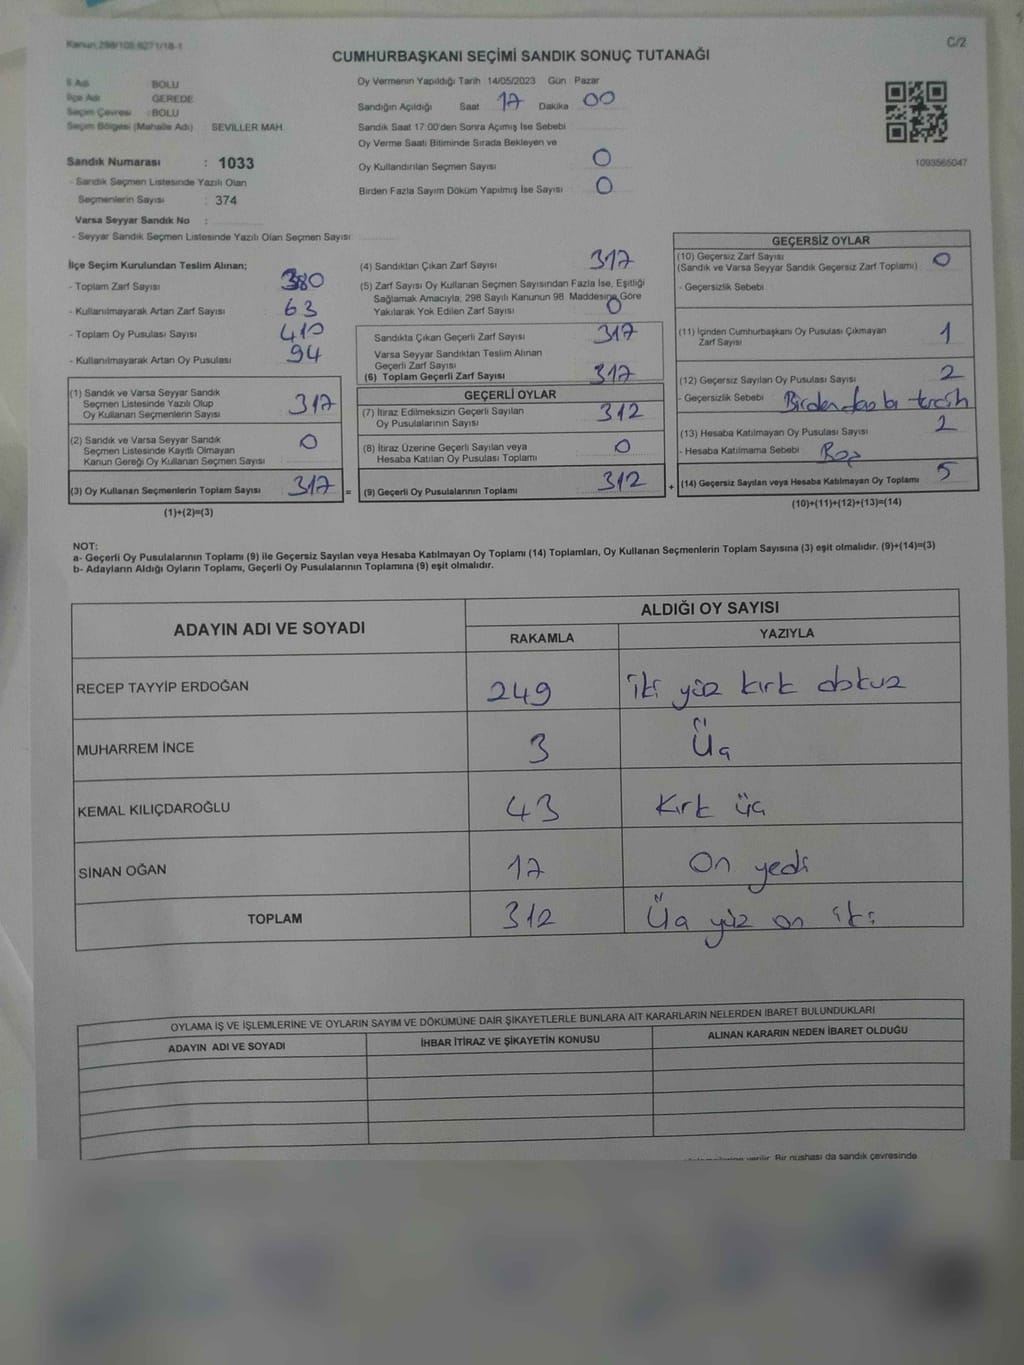 Kanun,298/105,6271/18-1
C/2
CUMHURBAŞKANI SEÇİMİ SANDIK SONUÇ TUTANAĞI
İl Adı BOLU
İlçe Adı GEREDE
Seçim Çevresi : BOLU
Seçim Bölgesi (Mahalle Adı) SEVİLLER MAH.
Sandık Numarası : 1033
- Sandık Seçmen Listesinde Yazılı Olan
Seçmenlerin Sayısı : 374
Varsa Seyyar Sandık No :
- Seyyar Sandık Seçmen Listesinde Yazılı Olan Seçmen Sayısı:
Oy Vermenin Yapıldığı Tarih :14/05/2023 Gün : Pazar
Sandığın Açıldığı Saat 17 Dakika : 00
Sandık Saat 17:00'den Sonra Açımış İse Sebebi
Oy Verme Saati Bitiminde Sırada Bekleyen ve
Oy Kullandırılan Seçmen Sayısı 0
Birden Fazla Sayım Döküm Yapılmış İse Sayısı 0
1093565047
İlçe Seçim Kurulundan Teslim Alınan;
- Toplam Zarf Sayısı 380
- Kullanılmayarak Artan Zarf Sayısı 63
- Toplam Oy Pusulası Sayısı 410
- Kullanılmayarak Artan Oy Pusulası 94
(1) Sandık ve Varsa Seyyar Sandık
Seçmen Listesinde Yazılı Olup
Oy Kullanan Seçmenlerin Sayısı 317
(2) Sandık ve Varsa Seyyar Sandık
Seçmen Listesinde Kayıtlı Olmayan
Kanun Gereği Oy Kullanan Seçmen Sayısı 0
(3) Oy Kullanan Seçmenlerin Toplam Sayısı 317 =
(1)+(2)=(3)
(4) Sandıktan Çıkan Zarf Sayısı 317
(5) Zarf Sayısı Oy Kullanan Seçmen Sayısından Fazla İse, Eşitliği
Sağlamak Amacıyla, 298 Sayılı Kanunun 98. Maddesine Göre
Yakılarak Yok Edilen Zarf Sayısı 0
Sandıkta Çıkan Geçerli Zarf Sayısı 317
Varsa Seyyar Sandıktan Teslim Alınan
Geçerli Zarf Sayısı
(6) Toplam Geçerli Zarf Sayısı 317
GEÇERLİ OYLAR
(7) İtiraz Edilmeksizin Geçerli Sayılan
Oy Pusulalarının Sayısı 312
(8) İtiraz Üzerine Geçerli Sayılan veya
Hesaba Katılan Oy Pusulası Toplamı 0
(9) Geçerli Oy Pusulalarının Toplamı 312 +
GEÇERSİZ OYLAR
(10) Geçersiz Zarf Sayısı
(Sandık ve Varsa Seyyar Sandık Geçersiz Zarf Toplamı) 0
- Geçersizlik Sebebi
(11) İçinden Cumhurbaşkanı Oy Pusulası Çıkmayan
Zarf Sayısı 1
(12) Geçersiz Sayılan Oy Pusulası Sayısı 2
- Geçersizlik Sebebi Birden fazla tercih
(13) Hesaba Katılmayan Oy Pusulası Sayısı 2
- Hesaba Katılmama Sebebi Boş
(14) Geçersiz Sayılan veya Hesaba Katılmayan Oy Toplamı 5
(10)+(11)+(12)+(13)=(14)
NOT:
a- Geçerli Oy Pusulalarının Toplamı (9) ile Geçersiz Sayılan veya Hesaba Katılmayan Oy Toplamı (14) Toplamları, Oy Kullanan Seçmenlerin Toplam Sayısına (3) eşit olmalıdır. (9)+(14)=(3)
b- Adayların Aldığı Oyların Toplamı, Geçerli Oy Pusulalarının Toplamına (9) eşit olmalıdır.
ADAYIN ADI VE SOYADI ALDIĞI OY SAYISI
RAKAMLA YAZIYLA
RECEP TAYYİP ERDOĞAN 249 iki yüz kırk dokuz
MUHARREM İNCE 3 Üç
KEMAL KILIÇDAROĞLU 43 Kırk üç
SİNAN OĞAN 17 On yedi
TOPLAM 312 Üç yüz on iki
OYLAMA İŞ VE İŞLEMLERİNE VE OYLARIN SAYIM VE DÖKÜMÜNE DAİR ŞİKAYETLERLE BUNLARA AİT KARARLARIN NELERDEN İBARET BULUNDUKLARI
ADAYIN ADI VE SOYADI İHBAR İTİRAZ VE ŞİKAYETİN KONUSU ALINAN KARARIN NEDEN İBARET OLDUĞU
verilir. Bir nüshası da sandık çevresinde